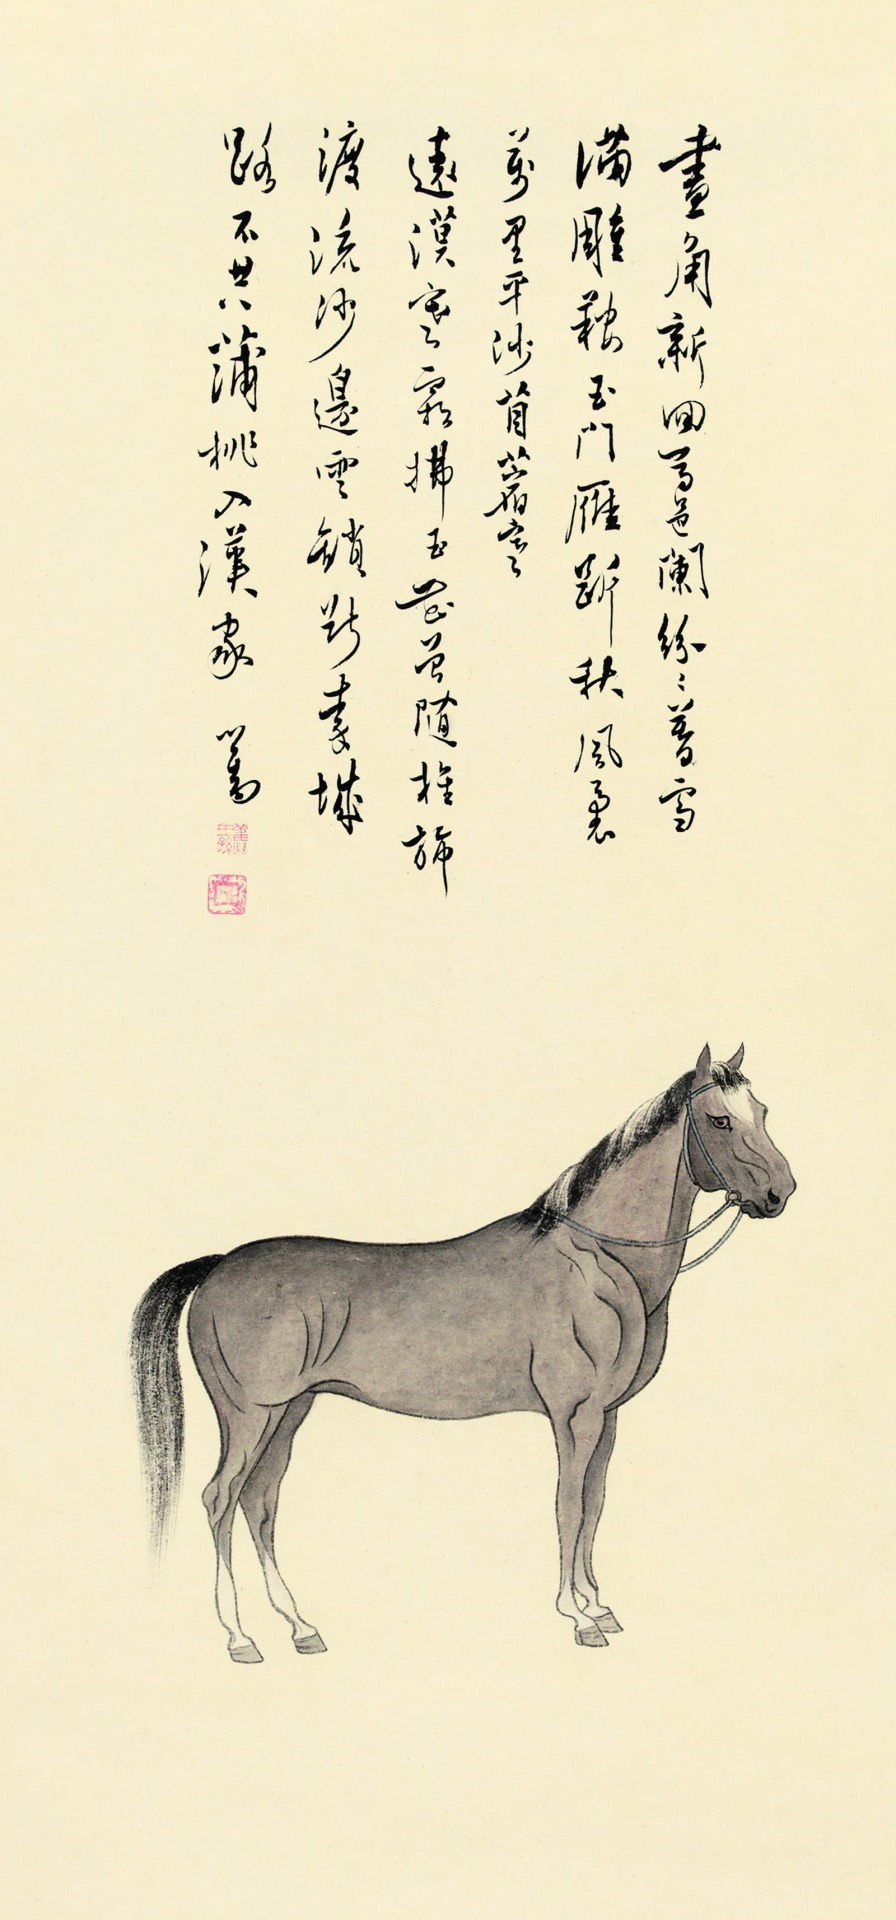 畫角新回馬邑闌紛紛暮雪
滿雕鞍玉門雁斷秋風裏
萬里平沙苜蓿寒
遠漠寒霜拂玉花曾隨旌旆
渡流沙邊雲鎖斷城
路不共蒲桃入漢家 心畬
舊王孫